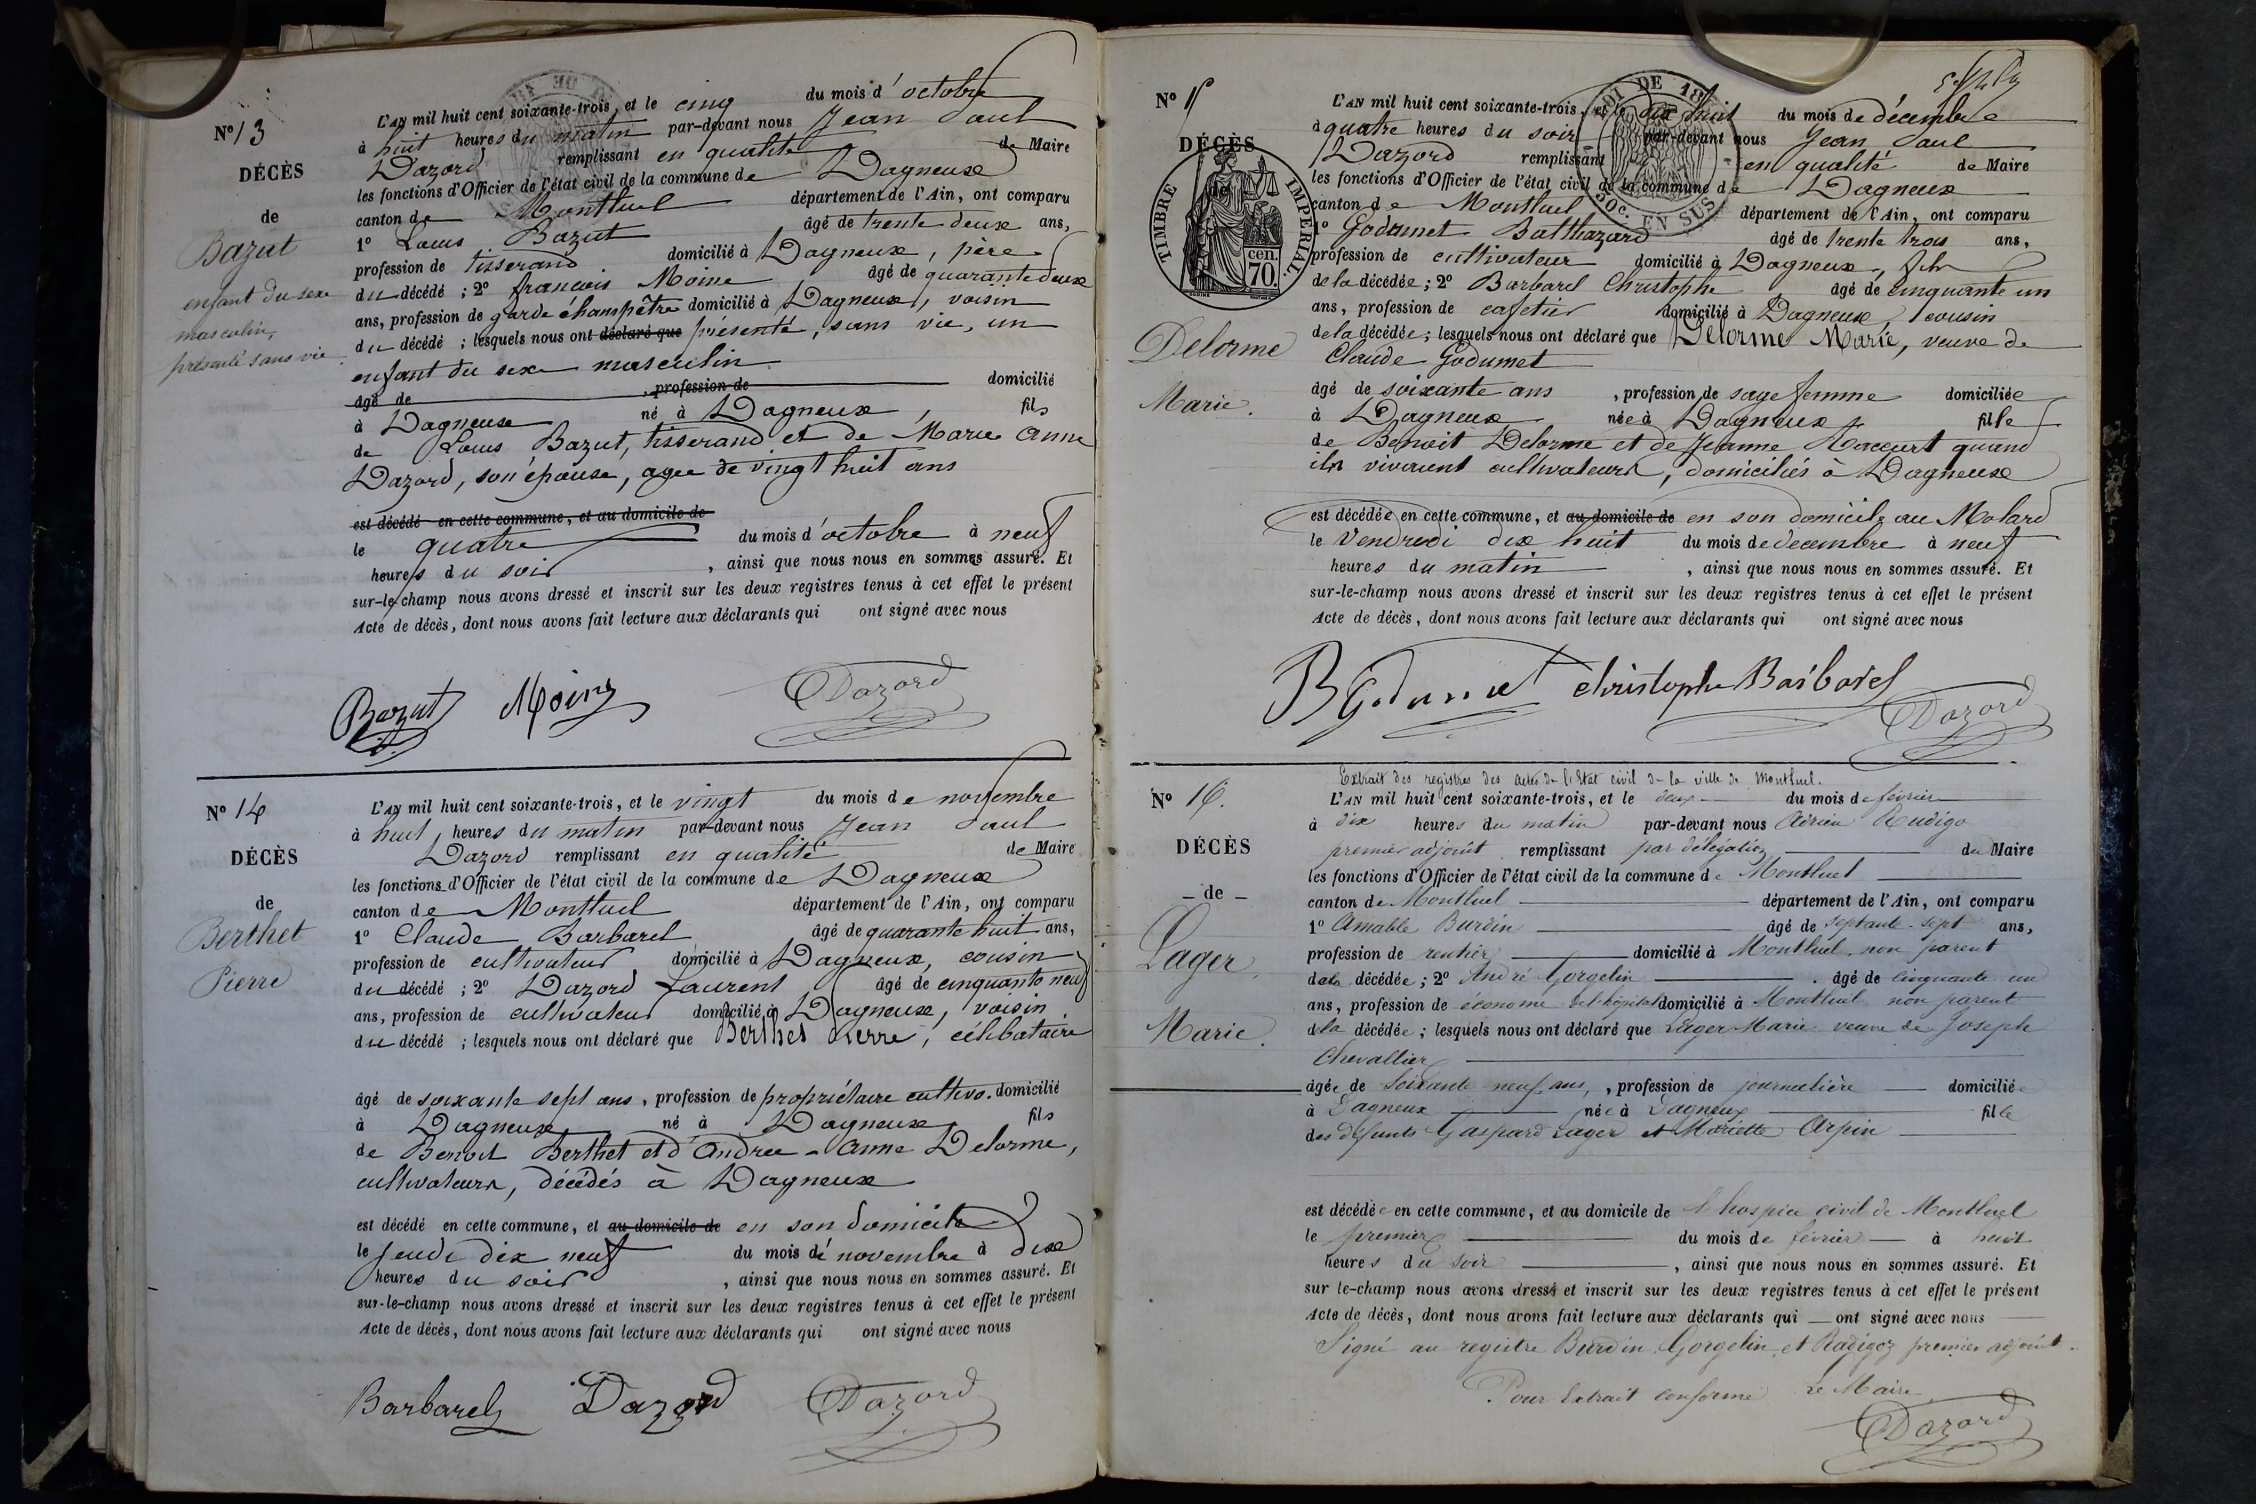 N° 13
DÉCÈS
de
Bazut
enfant du sexe
masculin,
présenté sans vie
L'AN mil huit cent soixante-trois, et le cinq du mois d'octobre
à huit heures du matin par-devant nous Jean Paul
Dazord remplissant en qualité de Maire
les fonctions d'Officier de l'état civil de la commune de Dagneux
canton de Montluel département de l'Ain, ont comparu
1° Louis Bazut âgé de trente deux ans,
profession de tisserand domicilié à Dagneux, père
du décédé ; 2° francois Moine âgé de quarante deux
ans, profession de garde champêtre domicilié à Dagneux, voisin
du décédé ; lesquels nous ont déclaré que présenté, sans vie, un
enfant du sexe masculin
âgé de , profession de domicilié
à Dagneux né à Dagneux, fils
de Louis Bazut, tisserand et de Marie Anne
Dazord, son épouse, agée de vingt huit ans
est décédé en cette commune, et au domicile de
le quatre du mois d'octobre à neuf
heures du soir , ainsi que nous nous en sommes assuré. Et
sur-le-champ nous avons dressé et inscrit sur les deux registres tenus à cet effet le présent
Acte de décès, dont nous avons fait lecture aux déclarants qui ont signé avec nous
Bazut Moine Dazord
N° 14
DÉCÈS
de
Berthet
Pierre
L'AN mil huit cent soixante-trois, et le vingt du mois de novembre
à huit, heures du matin par-devant nous Jean Paul
Dazord remplissant en qualité de Maire
les fonctions d'Officier de l'état civil de la commune de Dagneux
canton de Montluel département de l'Ain, ont comparu
1° Claude Barbarel âgé de quarante huit ans,
profession de cultivateur domicilié à Dagneux, cousin
du décédé ; 2° Dazord Laurent âgé de cinquante neuf
ans, profession de cultivateur domicilié à Dagneux, voisin
du décédé ; lesquels nous ont déclaré que Berthet Pierre, célibataire
âgé de soixante sept ans, profession de propriétaire cultivo. domicilié
à Dagneux né à Dagneux fils
de Benoit Berthet et d'Andrée-Anne Delorme,
cultivateurs, décédés à Dagneux
est décédé en cette commune, et au domicile de en son domicile
le Jeudi dix neuf du mois de novembre à dix
heures du soir , ainsi que nous nous en sommes assuré. Et
sur-le-champ nous avons dressé et inscrit sur les deux registres tenus à cet effet le présent
Acte de décès, dont nous avons fait lecture aux déclarants qui ont signé avec nous
Barbarel Dazord Dazord
N° 15
DÉCÈS
de
TIMBRE IMPÉRIAL.
70 cen.
LOI DE 18
50c. EN SUS
Delorme
Marie.
L'AN mil huit cent soixante-trois, et le dix huit du mois de décembre
à quatre heures du soir par-devant nous Jean Paul
Dazord remplissant en qualité de Maire
les fonctions d'Officier de l'état civil de la commune de Dagneux
canton de Montluel département de l'Ain, ont comparu
1° Godumet Balthazard âgé de trente trois ans,
profession de cultivateur domicilié à Dagneux, fils
de la décédée ; 2° Barbarel Christophe âgé de cinquante un
ans, profession de cafetier domicilié à Dagneux, cousin
de la décédée ; lesquels nous ont déclaré que Delorme Marie, veuve de
Claude Godumet
âgé de soixante ans , profession de sage femme domiciliée
à Dagneux née à Dagneux fille
de Benoit Delorme et de Jeanne Raccurt quand
ils vivaient cultivateurs, domiciliés à Dagneux
est décédée en cette commune, et au domicile de en son domicile au Molard
le Vendredi dix huit du mois de decembre à neuf
heures du matin , ainsi que nous nous en sommes assuré. Et
sur-le-champ nous avons dressé et inscrit sur les deux registres tenus à cet effet le présent
Acte de décès, dont nous avons fait lecture aux déclarants qui ont signé avec nous
B Godumet christophe Barbarel
Dazord
Extrait des registres des actes de l'Etat civil de la ville de Montluel.
N° 16.
DÉCÈS
de
Lager
Marie.
L'AN mil huit cent soixante-trois, et le deux du mois de février
à dix heures du matin par-devant nous Adrien Rudigo
premier adjoint remplissant par délégation du Maire
les fonctions d'Officier de l'état civil de la commune de Montluel
canton de Montluel département de l'Ain, ont comparu
1° Amable Burdin âgé de septante-sept ans,
profession de rentier domicilié à Montluel non parent
de la décédée ; 2° André Gorgelin âgé de cinquante un
ans, profession de économe de l'hôpital domicilié à Montluel non parent
de la décédée ; lesquels nous ont déclaré que Lager Marie veuve de Joseph
Chevallier
âgée de soixante neuf ans, , profession de journalière domiciliée
à Dagneux née à Dagneux fille
des défunts Gaspard Lager et Mariette Arpin
est décédée en cette commune, et au domicile de l'hospice civil de Montluel
le premier du mois de février à huit
heures du soir , ainsi que nous nous en sommes assuré. Et
sur le-champ nous avons dressé et inscrit sur les deux registres tenus à cet effet le présent
Acte de décès, dont nous avons fait lecture aux déclarants qui ont signé avec nous
Signé au registre Burdin Gorgelin et Radigoz premier adjoint.
Pour Extrait conforme Le Maire
Dazord